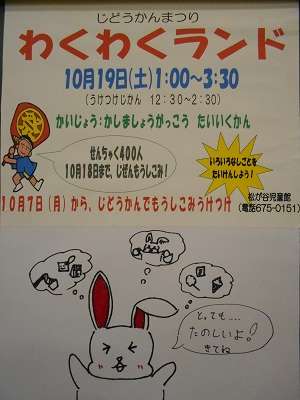 じどうかんまつり
わくわくランド
10月19日(土)1:00～3:30
(うけつけじかん 12:30～2:30)
かいじょう:かしましょうがっこう たいいくかん
祭
せんちゃく400人
10月18日まで、じぜんもうしこみ!
いろいろなしごとを
たいけんしよう!
松が谷児童館
(電話675-0151)
10月7日(月)から、じどうかんでもうしこみうけつけ
とっても‥‥
たのしいよ!
きてね